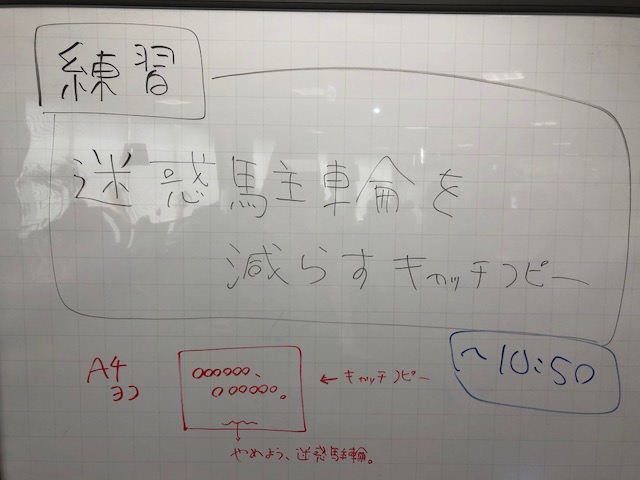 練習
迷惑駐輪を
減らすキャッチコピー
~10:50
A4
ヨコ
○○○○○○、
○○○○○○。
←キャッチコピー
やめよう、迷惑駐輪。